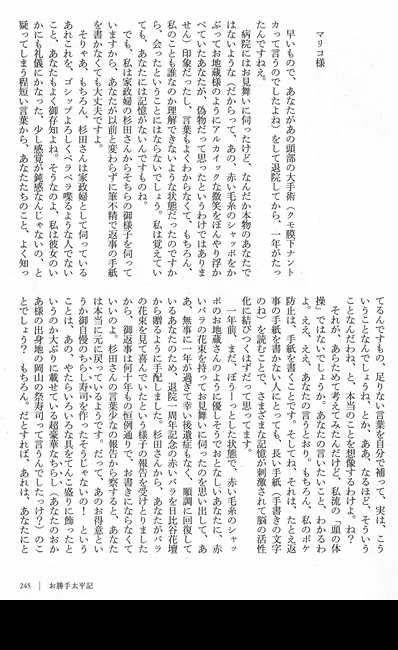 マリコ様
早いもので、あなたがあの頭部の大手術（クモ膜下ナント
カって言うのでしたよね）をして退院してから、一年がたっ
たんですねえ。
病院にはお見舞いに伺ったけど、なんだか本物のあなたで
はないような（だからって、あの、赤い毛糸のシャッポをか
ぶってお地蔵様のようにアルカイックな微笑をぼんやり浮か
べていたあなたが、偽物だって思ったというわけではありま
せん）印象だったし、言葉もよくわからなくて、もちろん、
私のことも誰なのか理解できないような状態だったのですか
ら、会ったということにはならないでしょう。私は覚えてい
ても、あなたには記憶がないんですものね。
でも、私は家政婦の杉田さんからそちらの御様子を伺って
いますから、あなたが以前と変わらずに筆不精で返事の手紙
を書かなくても大丈夫ですよ。
そりゃあ、もちろん、杉田さんは家政婦として伺っている
あれこれを、ゴシップよろしくペラペラ喋るような人でない
こと、あなたもよく御存知よね。そうなのよ、私は彼女のい
かにも礼儀にかなった、少し感覚が鈍感なんじゃないの、と
疑ってしまう程短い言葉から、あなたたちのこと、よく知っ
てるんですもの、足りない言葉を自分で補って、実は、こう
いうことなんでしょうね、とか、ああ、なるほど、そういう
ことなんだわね、と、本当のことを想像するわけよ。ね？
それが、あらためて考えてみたんだけど、私流の「頭の体
操」ではないでしょうか。あなたの言いたいこと、わかるわ
よ。ええ、ええ、あなたの言うとおり。もちろん、私のボケ
防止は、手紙を書くことです。そしてね、それは、たとえ返
事の手紙を書かない人にとっても、長い手紙（手書きの文字
のね）を読むことで、さまざまな記憶が刺激されて脳の活性
化に結びつくはずだって思ってます。
一年前、まだ、ぼうーっとした状態で、赤い毛糸のシャッ
ポのお地蔵さんのように優しそうでおとなしいあなたに、赤
いバラの花束を持ってお見舞いに伺ったのを思い出して、あ
あ、無事に一年が過ぎて幸い後遺症もなく、順調に回復して
いるあなたのため、退院一周年記念の赤いバラを日比谷花壇
から贈るように手配しました。杉田さんから、あなたがバラ
の花束を見て喜んでいたという様子の報告を受けとりました
から、御返事は何十年もの恒例通りで、お書きにならなくて
いいのよ。杉田さんの言葉少なの報告から察すると、あなた
は本当に元に戻っているようです。だって、あのお得意とい
うか御自慢のちらし寿司を作ったそうじゃないの！　という
ことは、あの、やたらいろいろな具をてんこ盛りに飾ったと
いうのか大ぶりに載せている超豪華なちらし（あなたのおか
あ様の出身地の岡山の祭寿司って言うんでしたっけ？）のこ
とでしょう？　もちろん。だとすれば、あれは、あなたにと
245　お勝手太平記